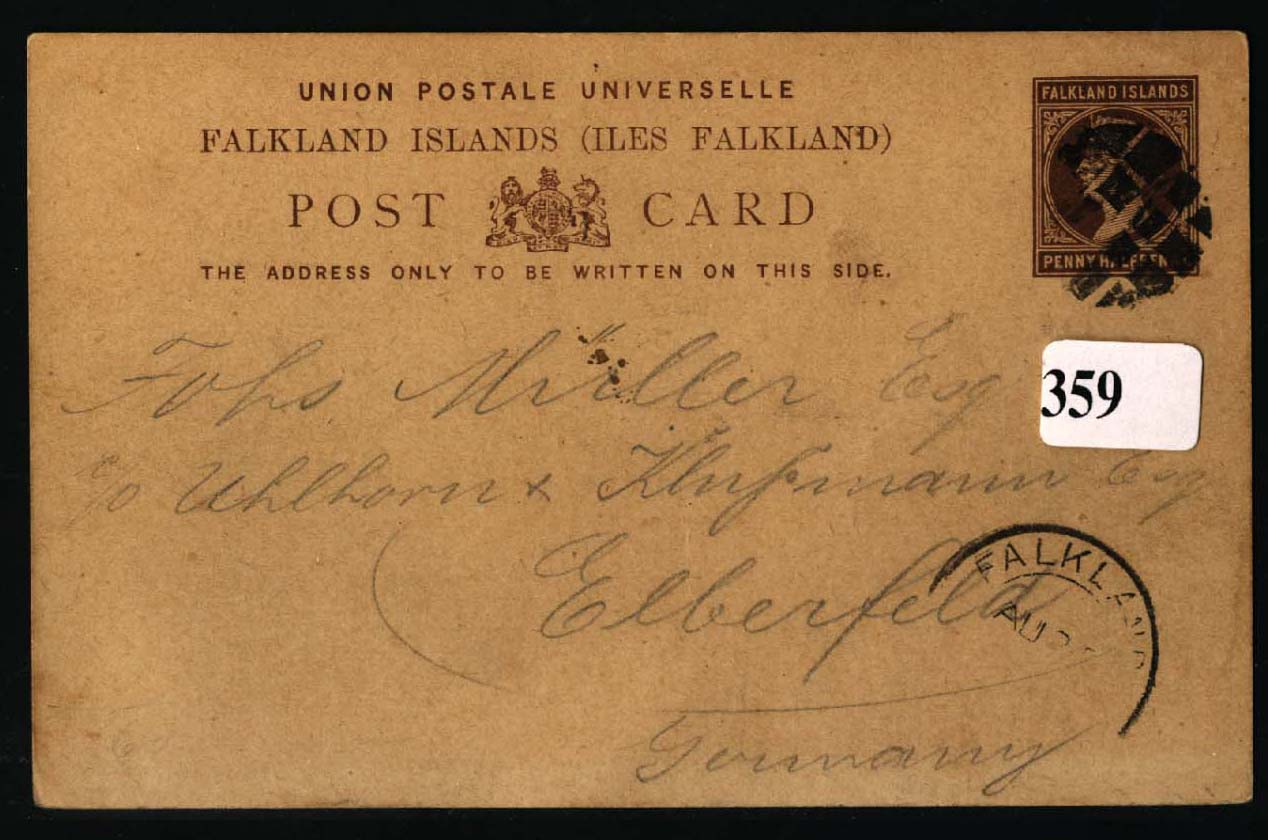 UNION POSTALE UNIVERSELLE
FALKLAND ISLANDS (ILES FALKLAND)
POST CARD
THE ADDRESS ONLY TO BE WRITTEN ON THIS SIDE.
FALKLAND ISLANDS
PENNY HALFPEN
359
Fohs Müller Esq
c/o Uhlhorn & Klußmann Esq
Elberfeld
Germany
FALKLAND
AU